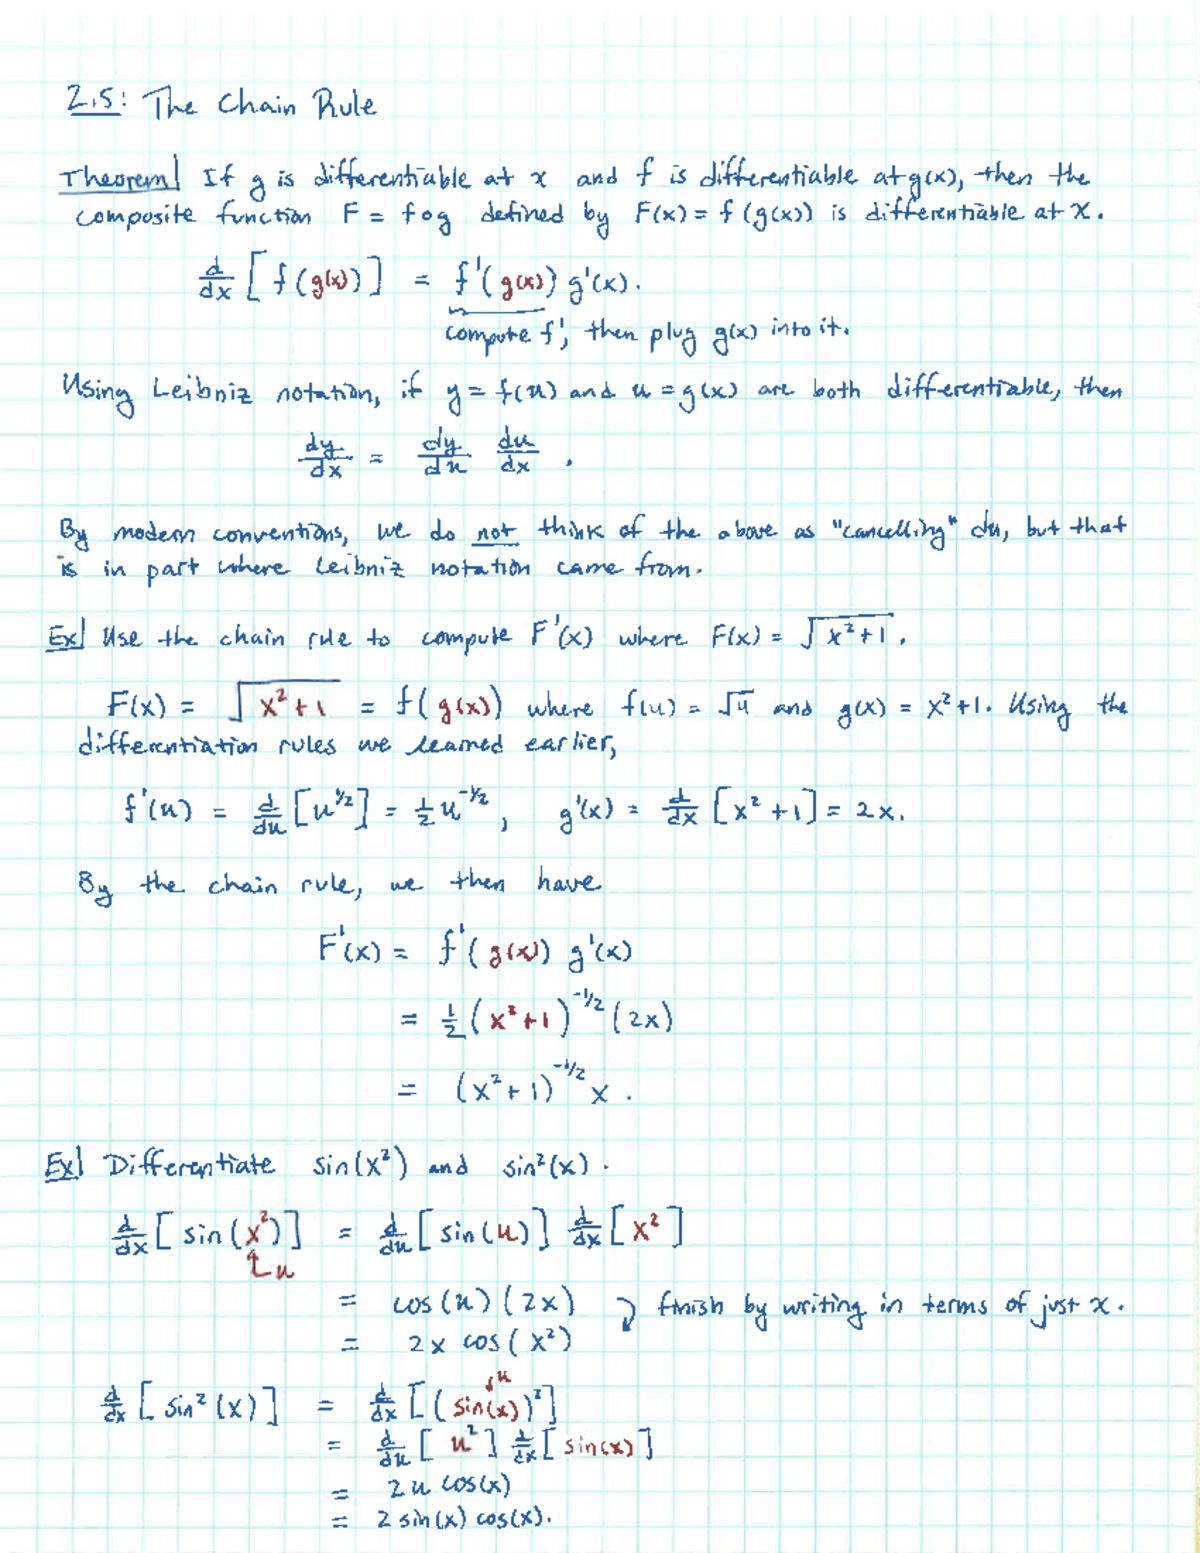 2.5: The Chain Rule
Theorem| If g is differentiable at x and f is differentiable at g(x), then the
composite function F = f∘g defined by F(x) = f(g(x)) is differentiable at x.
d/dx [f(g(x))] = f'(g(x)) g'(x).
compute f', then plug g(x) into it.
Using Leibniz notation, if y = f(u) and u = g(x) are both differentiable, then
dy/dx = dy/du du/dx.
By modern conventions, we do not think of the above as "cancelling" du, but that
is in part where Leibniz notation came from.
Ex| Use the chain rule to compute F'(x) where F(x) = √(x²+1).
F(x) = √(x²+1) = f(g(x)) where f(u) = √u and g(x) = x²+1. Using the
differentiation rules we learned earlier,
f'(u) = d/du [u^(1/2)] = 1/2 u^(-1/2), g'(x) = d/dx [x²+1] = 2x.
By the chain rule, we then have
F'(x) = f'(g(x)) g'(x)
= 1/2 (x²+1)^(-1/2) (2x)
= (x²+1)^(-1/2) x.
Ex| Differentiate sin(x²) and sin²(x).
d/dx [sin(x²)] = d/du [sin(u)] d/dx [x²]
↑u
= cos(u)(2x) finish by writing in terms of just x.
= 2x cos(x²)
↓u
d/dx [sin²(x)] = d/dx [(sin(x))²]
= d/du [u²] d/dx [sin(x)]
= 2u cos(x)
= 2 sin(x) cos(x).